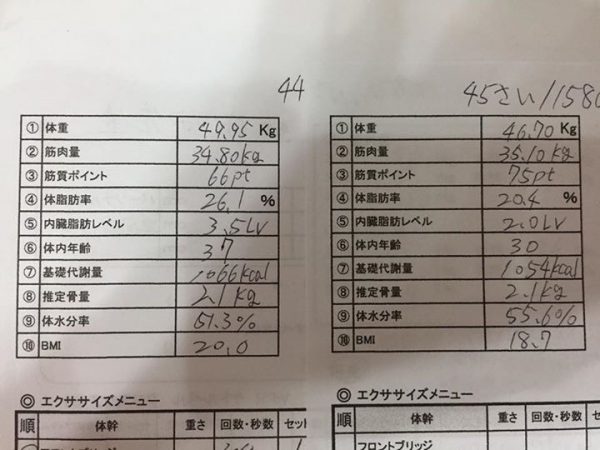 44
① 体重 49.95 Kg
② 筋肉量 34.80kg
③ 筋質ポイント 66pt
④ 体脂肪率 26.1 %
⑤ 内臓脂肪レベル 3.5LV
⑥ 体内年齢 37
⑦ 基礎代謝量 1066kcal
⑧ 推定骨量 2.1kg
⑨ 体水分率 51.3%
⑩ BMI 20.0
◎ エクササイズメニュー
順 体幹 重さ 回数・秒数 セット
45さい/158
① 体重 46.70 Kg
② 筋肉量 35.10kg
③ 筋質ポイント 75pt
④ 体脂肪率 20.4 %
⑤ 内臓脂肪レベル 2.0LV
⑥ 体内年齢 30
⑦ 基礎代謝量 1054kcal
⑧ 推定骨量 2.1kg
⑨ 体水分率 55.6%
⑩ BMI 18.7
◎ エクササイズメニュー
順 体幹 重さ 回数・秒数 セッ
フロントブリッジ